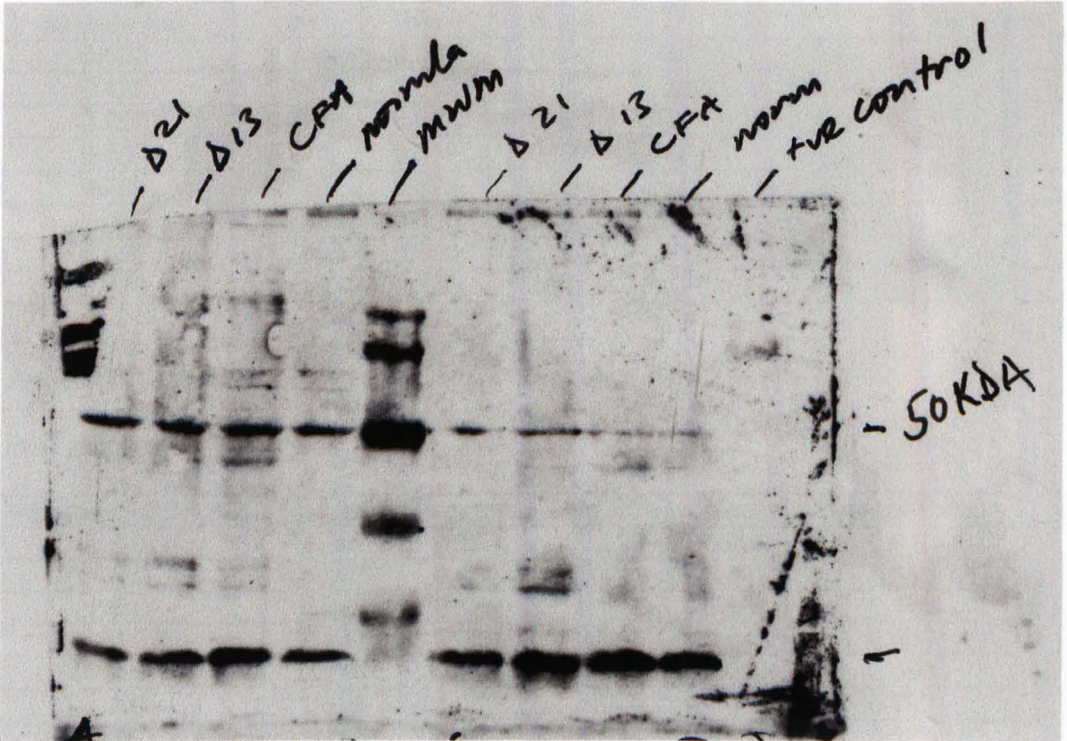 D 21
D 13
CFA
normla
MWM
D 21
D 13
CFA
norm
+ve control
- 50 KDA